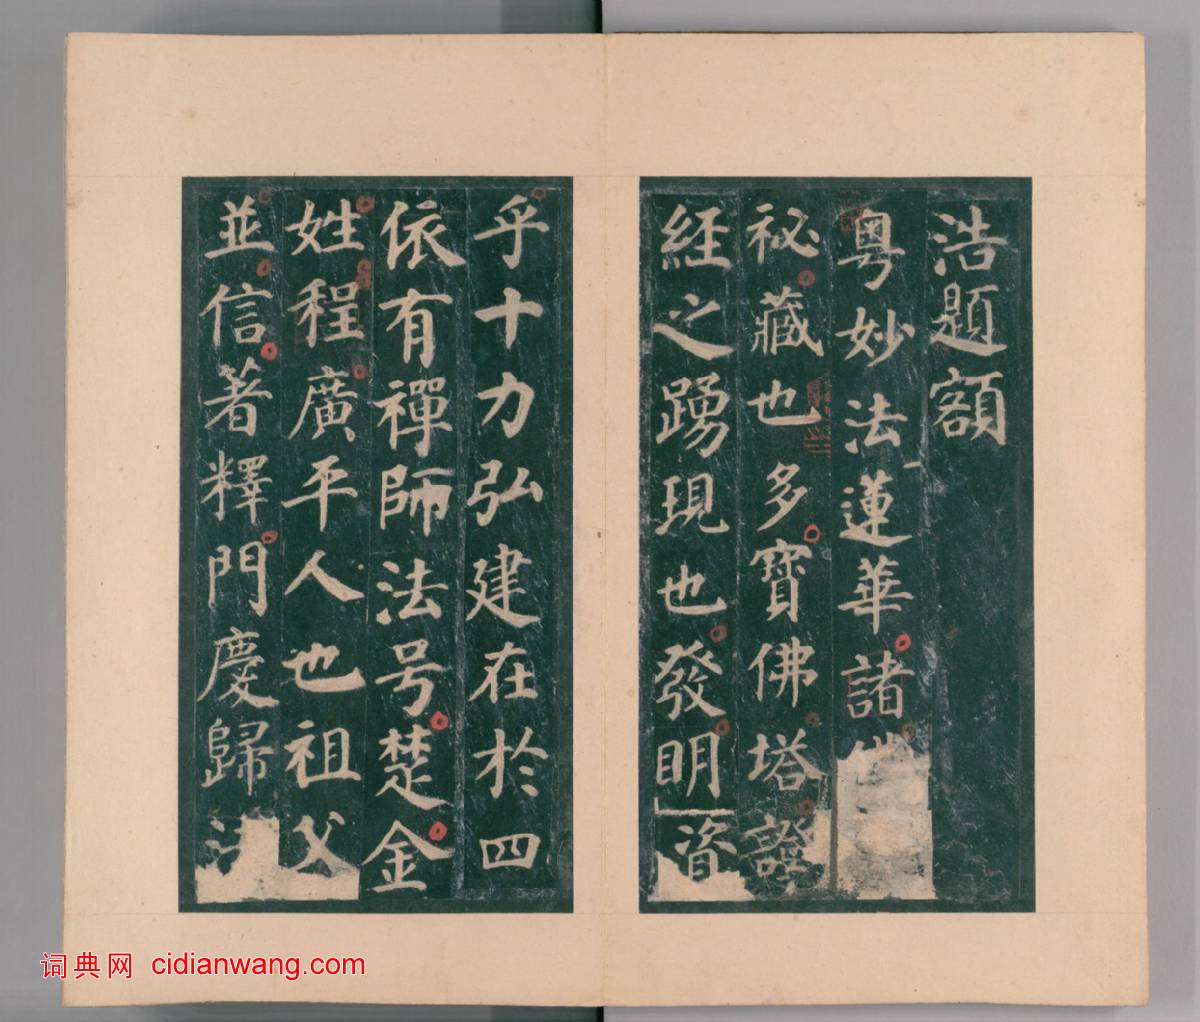 浩題額
粵妙法蓮華諸
祕藏也多寶佛塔證
經之踴現也發明資
乎十力弘建在於四
依有禪師法号楚金
姓程廣平人也祖父
並信著釋門慶歸法
词典网 cidianwang.com